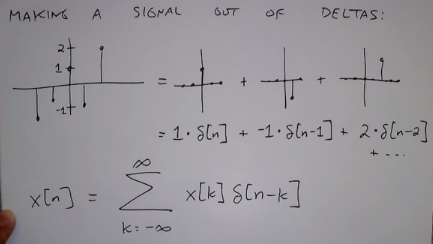 MAKING A SIGNAL OUT OF DELTAS:
2
1
-1
= + +
= 1·δ[n] + -1·δ[n-1] + 2·δ[n-2]
+ ...
∞
x[n] = ∑ x[k] δ[n-k]
k=-∞